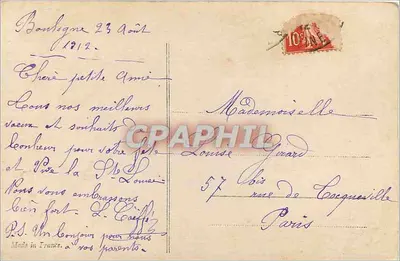 Boulogne 23 Août
1912.
Chère petite Amie
Tous nos meilleurs
voeux et souhaits de
bonheur pour votre fête
et Vive la Ste Louise
Nous vous embrassons
bien fort. L.
P.S. Un bonjour pour nous
à vos parents.
Made in France.
10
Mademoiselle
Louise Girard
57 bis
rue de Tocqueville
Paris
CPAPHIL.com